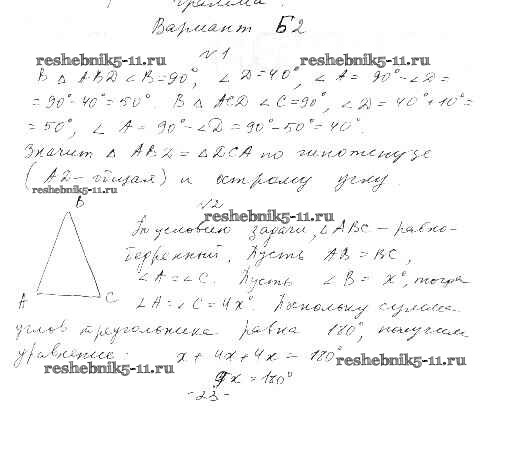 грамма.
Вариант Б2
№1
reshebnik5-11.ru reshebnik5-11.ru
В △ ABD ∠B=90°, ∠D=40°, ∠A = 90°-∠D=
=90°-40°=50°. В △ ACD ∠C=90°, ∠D = 40°+10°=
=50°, ∠A = 90°-∠D=90°-50°=40°.
Значит △ ABD = △DCA по гипотенузе
(AD-общая) и острому углу.
reshebnik5-11.ru
№2
reshebnik5-11.ru
B
По условию задачи, △ABC-равно-
бедренный. Пусть AB=BC,
∠A=∠C. Пусть ∠B= x°, тогда
A
C
∠A=∠C=4x°. Поскольку сумма
углов треугольника равна 180°, получим
уравнение: x+4x+4x=180°
reshebnik5-11.ru
reshebnik5-11.ru
9x=180°
-23-